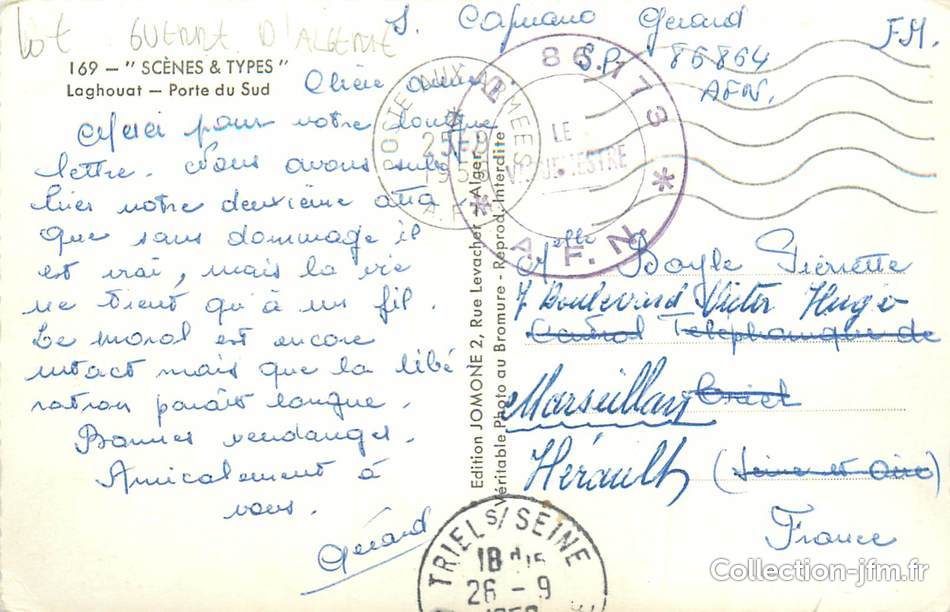 lot GUERRE D'ALGERIE
169 — " SCÈNES & TYPES "
Laghouat — Porte du Sud
Chère amie
Merci pour votre longue
lettre. Nous avons subi
hier notre deuxième atta
que sans dommage il
est vrai, mais la vie
ne tient qu'à un fil.
Le moral est encore
intact mais que la libé
ration paraît longue.
Bonnes vendanges.
Amicalement à
vous.
Gérard
Edition JOMONE 2, Rue Levacher - Alger
Véritable Photo au Bromure - Reprod. Interdite
S. Capuano Gérard
S.P. 86864
AFN.
F.M.
POSTE AUX ARMEES
25-9
A.F.N.
86773
LE
VAGUEMESTRE
* A. F. N. *
Melle Boyle Pierrette
7 Boulevard Victor Hugo
Central Telephonique de
Marseillan Triel
Hérault (Seine et Oise)
France
TRIEL S/ SEINE
18H15
26-9
Collection-jfm.fr